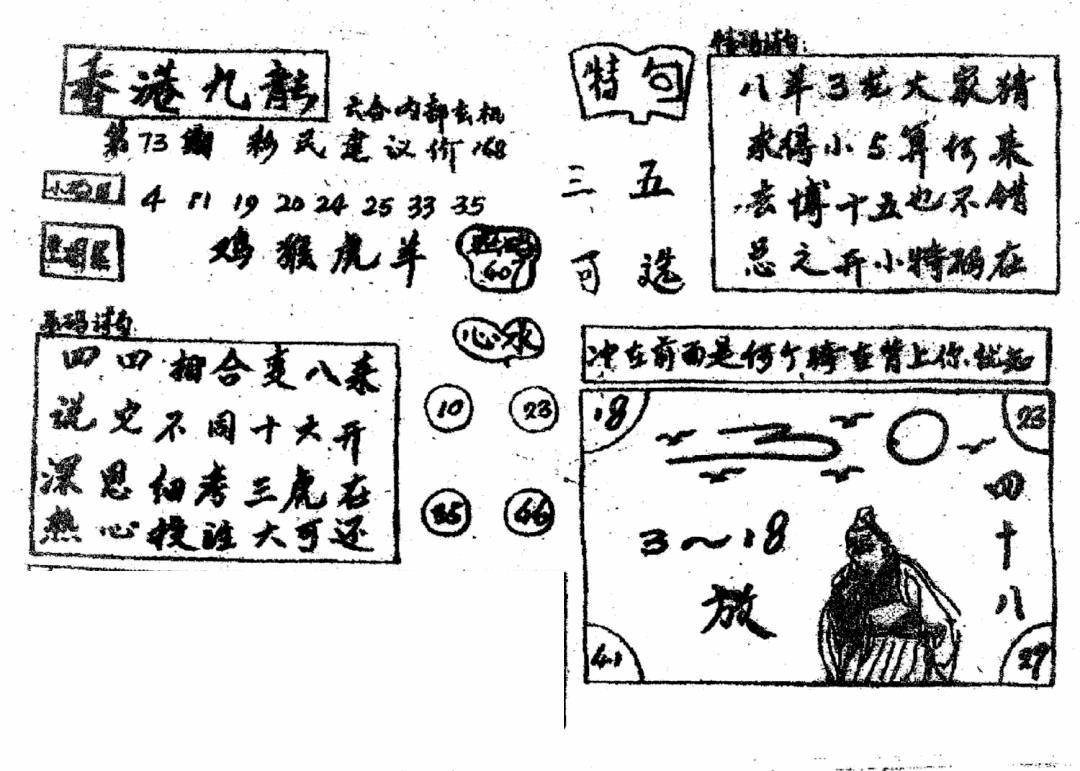 香港九龍
六合内部玄机
第73期 彩民建议价168
4 11 19 20 24 25 33 35
鸡猴虎羊
607
平码诗句
四四相合变八来
说它不同十大开
深思细考三虎在
热心投注大可还
心水
10 23
35 46
特句
三五
可选
特码诗句:
八羊3发大家猜
求得小5算何来
去博十五也不错
总之开小特码在
冲在前面是何个骑在背上你
18 23
3～18
放
四十八
41 29